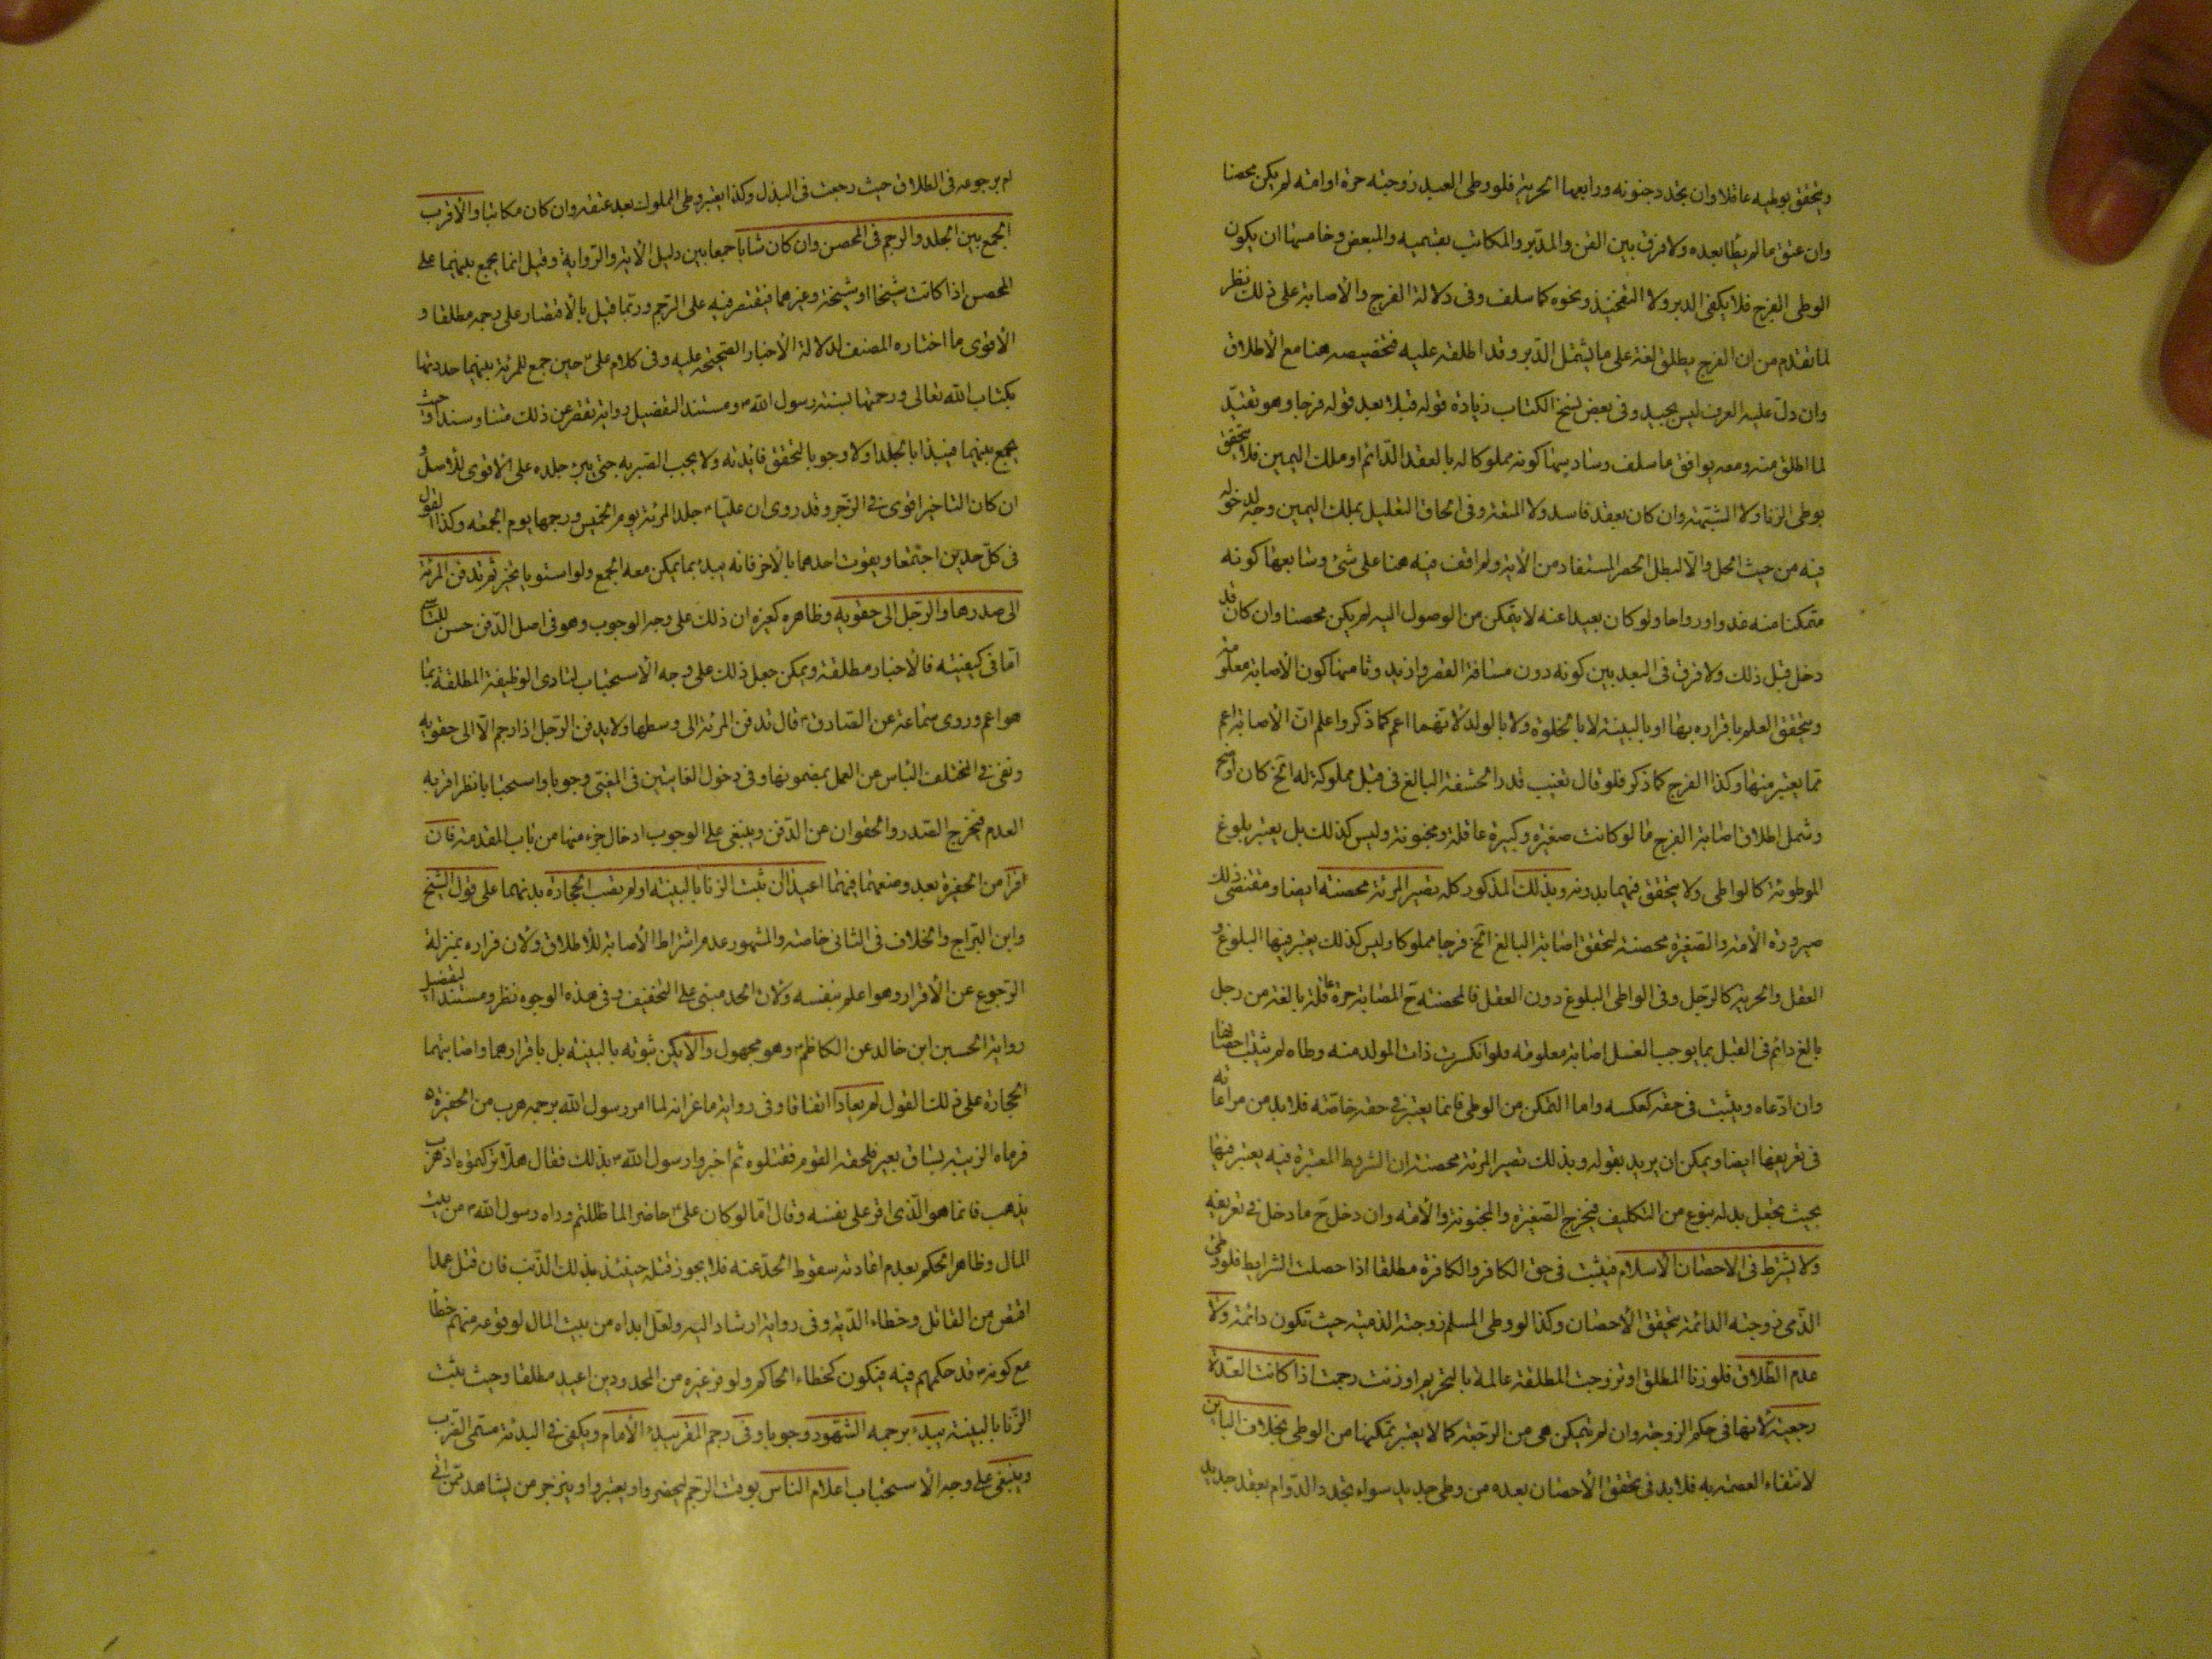 ويتحقق بوطيه عاقلا وان تجدد جنونه ورابعها الحرية فلو وطى العبد زوجته حرة او امة لم يكن محصنا
وان عتق ما لم يطأ بعده ولا فرق بين القن والمدبر والمكاتب بقسميه والمبعض وخامسها ان يكون
الوطى الفرج فلا يكفى الدبر ولا التفخيذ ونحوه كما سلف وفى دلالة الفرج والاصابة على ذلك نظر
لما تقدم من ان الفرج يطلق لغة على ما يشمل الدبر وقد اطلقه عليه فتخصيصه هنا مع الاطلاق
وان دل عليه العرف ليس بجيد وفى بعض نسخ الكتاب زيادة قوله قبلا بعد قوله فرجا وهو تقييد
لما اطلق منه ومعه يوافق ما سلف وسادسها كونه مملوكا له بالعقد الدائم او ملك اليمين فلا يتحقق
بوطى الزنا ولا الشبهة وان كان بعقد فاسد ولا المتعة وفى الحاق التحليل بملك اليمين وجه لدخوله
فيه من حيث الحل والا لبطل الحصر المستفاد من الاية ولم اقف فيه هنا على شئ وسابعها كونه
متمكنا منه غدوا ورواحا ولو كان بعيدا عنه لا يتمكن من الوصول اليه لم يكن محصنا وان كان قد
دخل قبل ذلك ولا فرق فى البعد بين كونه دون مسافة القصر وازيد وثامنها كون الاصابة معلومة
ويتحقق العلم باقراره بها او بالبينة لا بالخلوة ولا بالولد لانهما اعم كما ذكر واعلم ان الاصابة اعم
مما يعتبر منها وكذا الفرج كما ذكر فلو قال تغيب قدر الحشفة البالغ فى قبل مملوكة له الخ كان اوضح
وشمل اطلاق اصابة الفرج ما لو كانت صغيرة وكبيرة عاقلة ومجنونة وليس كذلك بل يعتبر بلوغ
الموطوئة كالواطى ولا يتحقق فيهما بدونه وبذلك المذكور كله تصير المرئة محصنة ايضا ومقتضى ذلك
صيرورة الامة والصغيرة محصنة لتحقق اصابة البالغ الخ فرجا مملوكا وليس كذلك يعتبر فيها البلوغ و
العقل والحرية كالرجل وفى الواطى البلوغ دون العقل فالمحصنة ح المصابة حرة عاقلة بالغة من رجل
بالغ دائم فى القبل بما يوجب الغسل اصابة معلومة فلو انكرت ذات الولد منه وطاه لم يثبت احصانها
وان ادعاه ويثبت فى حقه كعكسه واما التمكن من الوطى فانما يعتبر فى حقه خاصة فلا بد من مراعاته
فى تعريفها ايضا ويمكن ان يريد بقوله وبذلك تصير المرئة محصنة ان الشروط المعتبرة فيه يعتبر فيها
بحيث يجعل بدله بنوع من التكليف فيخرج الصغيرة والمجنونة والامة وان دخل ح ما دخل فى تعريفه
ولا يشترط فى الاحصان الاسلام فيثبت فى حق الكافر والكافرة مطلقا اذا حصلت الشرايط فلو وطى
الذمى زوجته الدائمة يتحقق الاحصان وكذا لو وطى المسلم زوجته الذمية حيث تكون دائمة ولا
عدم الطلاق فلو زنا المطلق او تزوجت المطلقة عالمة بالتحريم او زنت رجمت اذا كانت العدة
رجعية لانها فى حكم الزوجة وان لم يتمكن هى من الرجعة كما لا يعتبر تمكنها من الوطى بخلاف الباين
لانتفاء العصمة به فلا بد فى تحقق الاحصان بعده من وطى جديد سواء تجدد الدوام بعقد جديد
ام برجوعه فى الطلاق حيث رجعت فى البذل وكذا يعتبر وطى المملوك بعد عتقه وان كان مكاتبا والاقرب
الجمع بين الجلد والرجم فى المحصن وان كان شابا جمعا بين دليل الاية والرواية وقيل انما يجمع بينهما على
المحصن اذا كانت شيخا او شيخة وغيرهما فيقتصر فيه على الرجم وربما قيل بالاقتصار على رجمه مطلقا و
الاقوى ما اختاره المصنف لدلالة الاخبار الصحيحة عليه وفى كلام على ع حين جمع للمرئة بينهما حددتها
بكتاب الله تعالى ورجمتها بسنة رسول الله ص ومستند التفصيل رواية تقصر عن ذلك متنا وسندا وحيث
يجمع بينهما فيبدا بالجلد اولا وجوبا لتحقق فائدته ولا يجب الصبر به حتى يبرء جلده على الاقوى للاصل و
ان كان التاخير اقوى فى الزجر وقد روى ان عليا ع جلد المرئة يوم الخميس ورجمها يوم الجمعه وكذا القول
فى كل حدين اجتمعا ويفوت احدهما بالاخر فانه يبدء بما يمكن معه الجمع ولو استويا تخير ثم تدفن المرئة
الى صدرها والرجل الى حقويه وظاهره كغيره ان ذلك على وجه الوجوب وهو فى اصل الدفن حسن للتاسى
اما فى كيفيته فالاخبار مطلقة ويمكن جعل ذلك على وجه الاستحباب لتادى الوظيفة المطلقة بما
هو اعم وروى سماعة عن الصادق ع قال تدفن المرئة الى وسطها ولا يدفن الرجل اذا رجم الا الى حقويه
ونفى فى المختلف الباس عن العمل بمضمونها وفى دخول الغايتين فى المغيى وجوبا واستحبابا نظر اقربه
العدم فيخرج الصدر والحقوان عن الدفن وينبغى على الوجوب ادخال جزء منهما من باب المقدمة فان
افرا من الحفيرة بعد وضعهما فيهما اعيد ان ثبت الزنا بالبينة او لم تصب الحجارة بدنهما على قول الشيخ
وابن البراج والخلاف فى الثانى خاصة والمشهور عدم اشتراط الاصابة للاطلاق ولان فراره بمنزلة
الرجوع عن الاقرار وهو اعلم بنفسه ولان الحد مبنى على التخفيف وفى هذه الوجوه نظر ومستند التفصيل
رواية الحسين ابن خالد عن الكاظم ع وهو مجهول والا يكن ثبوته بالبينة بل باقرارهما واصابتهما
الحجارة على ذلك القول لم يعادا اتفاقا وفى رواية ماعز انه لما امر رسول الله برجمه هرب من الحفيرة
فرماه الزبير بساق بعير فلحقه القوم فقتلوه ثم اخبروا رسول الله ص بذلك فقال هلا تركتموه اذ هرب
يذهب فانما هو الذى اقر على نفسه وقال اما لو كان على ع حاضرا لما ظللتم وداه رسول الله ص من بيت
المال وظاهر الحكم بعدم اعادته سقوط الحد عنه فلا يجوز قتله حينئذ بذلك الذنب فان قتل عمدا
اقتص من القاتل وخطاء الدية وفى رواية ارشاد اليه ولعل ابداه من بيت المال لوقوعه منهم خطأ
مع كونه ص قد حكمهم فيه فيكون كخطاء الحاكم ولو فر غيره من المحدودين اعيد مطلقا وحيث يثبت
الزنا بالبينة يبدء برجمه الشهود وجوبا وفى رجم المقر يبدء الامام ويكفى فى البدئة مسمى الضرب
وينبغى على وجه الاستحباب اعلام الناس بوقت الرجم ليحضروا ويعتبروا وينزجر من يشاهد ممن اتى